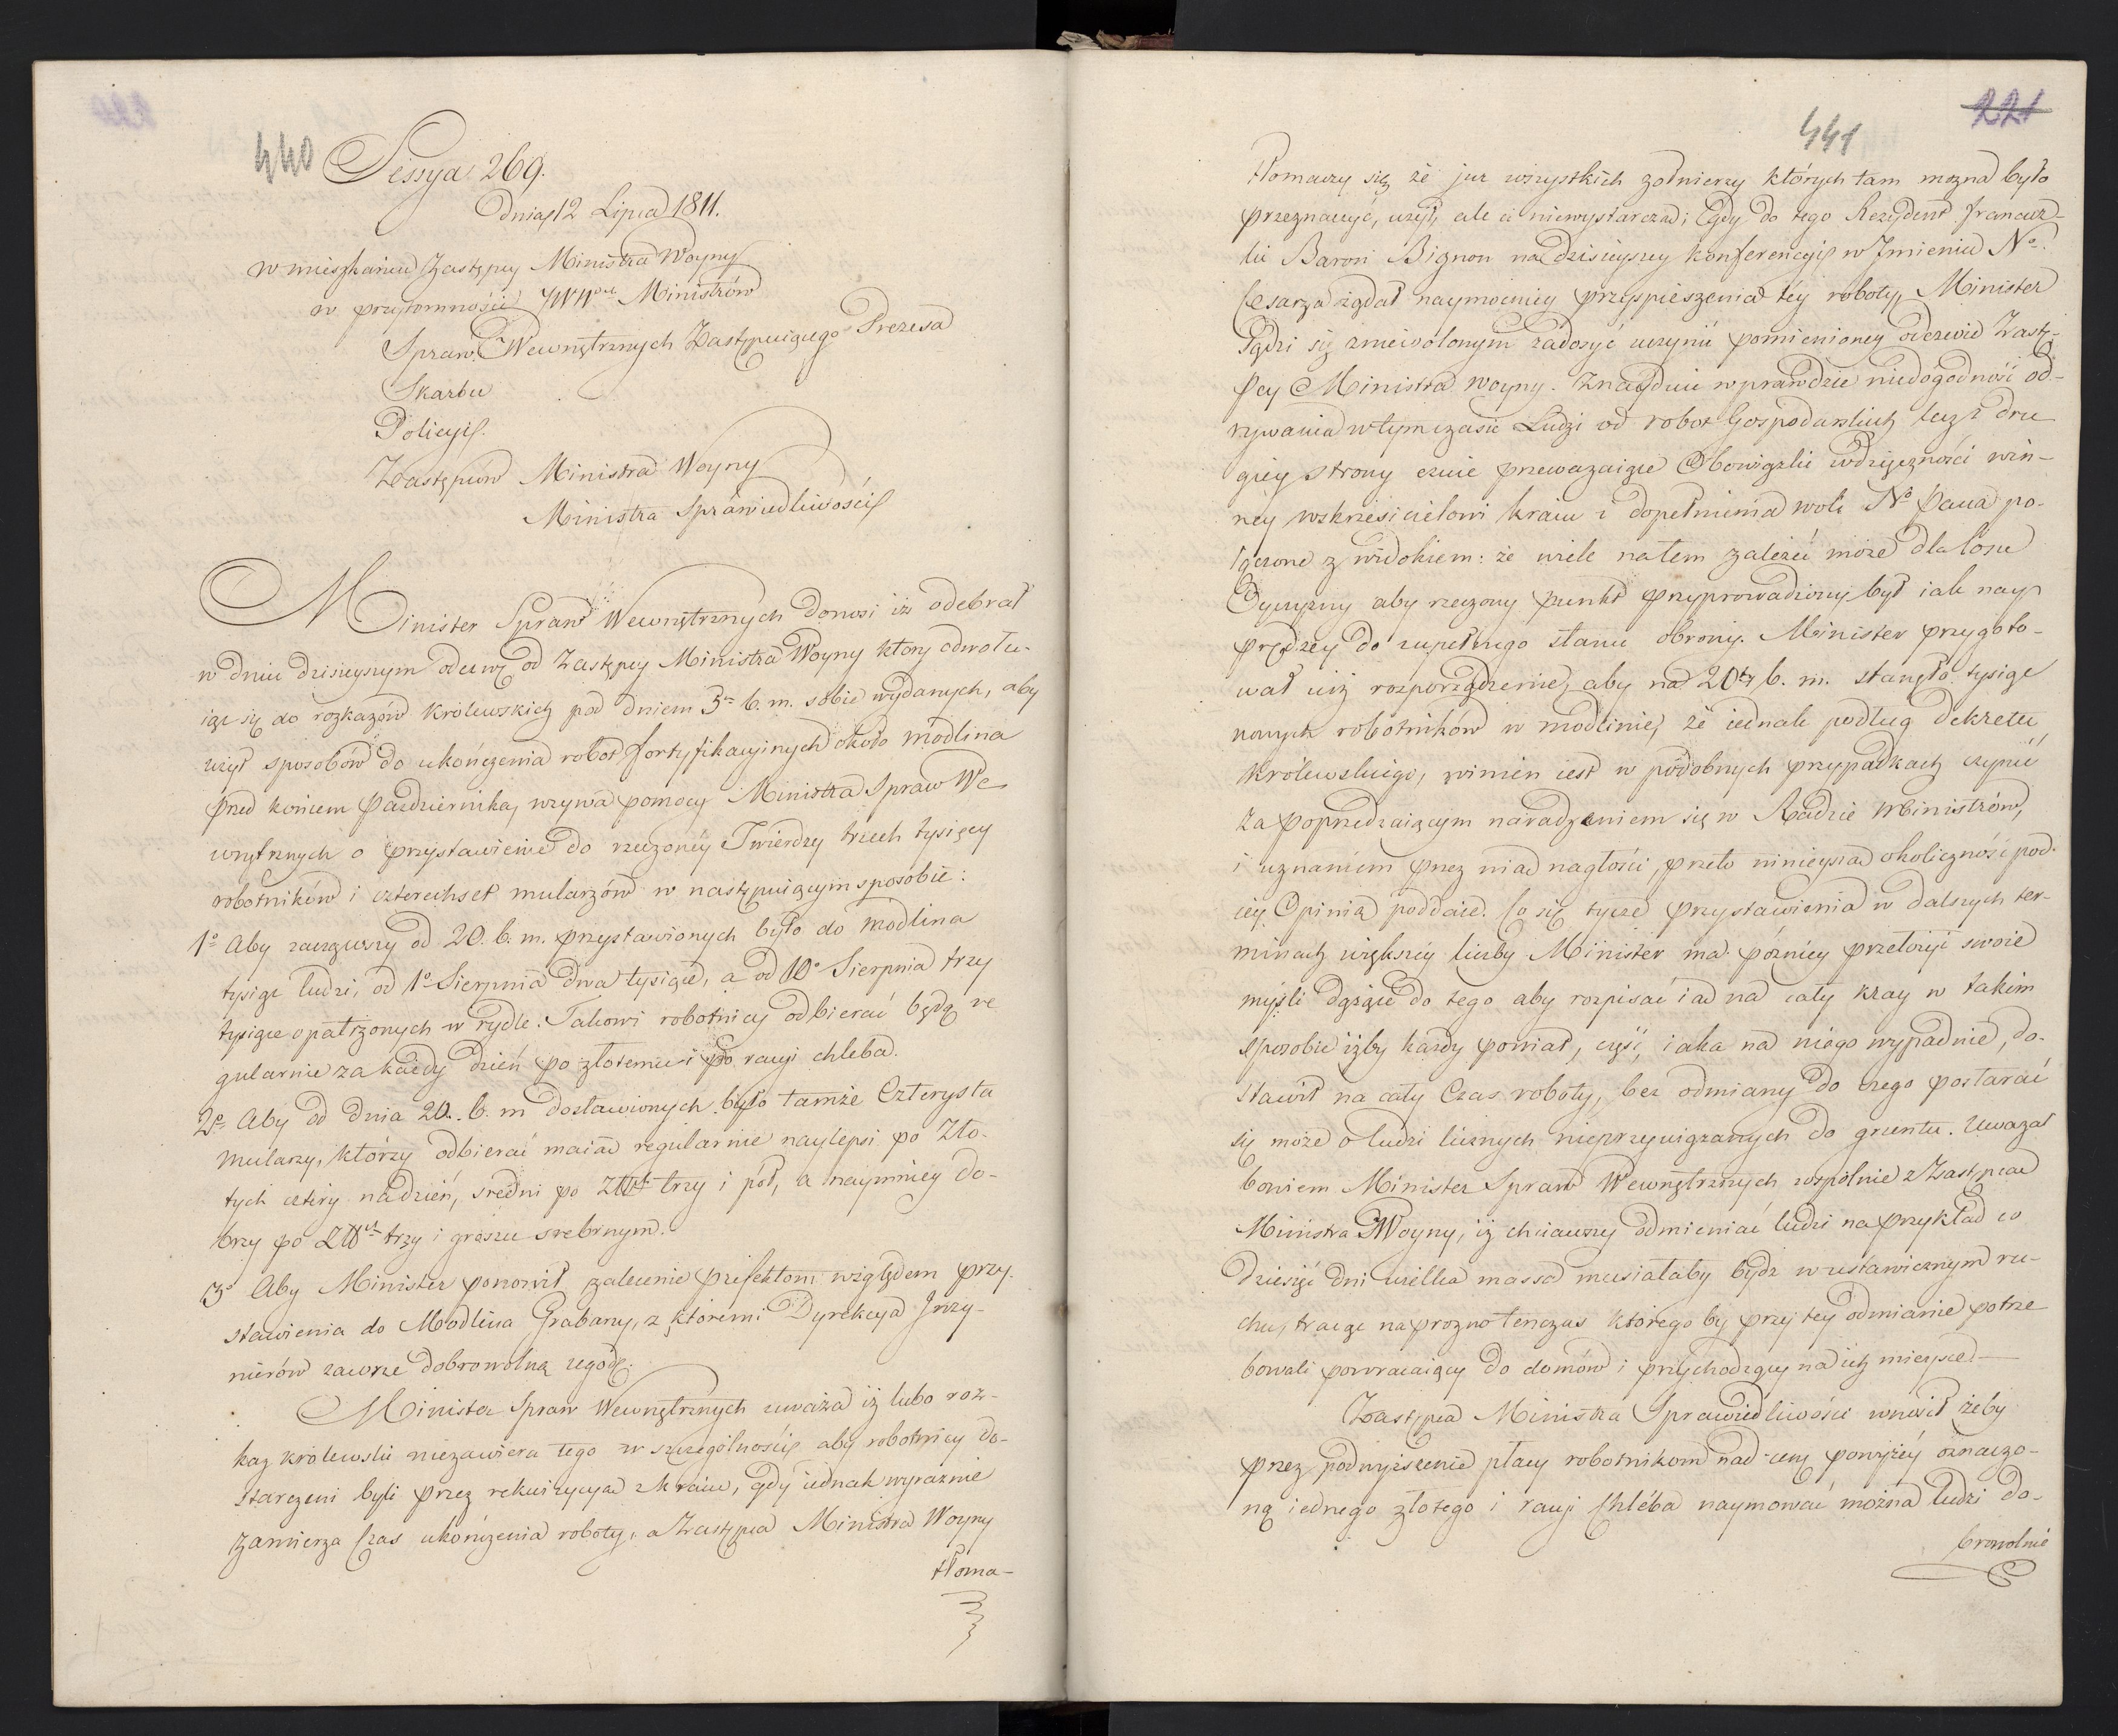 440
Sessya 269.
Dnia 12 Lipca 1811.
w mieszkaniu Zastępcy Ministra Woyny
w przytomności JWW Ministrów
Spraw Wewnętrznych Zastępuiącego Prezesa
Skarbu
Policyi
Zastępców Ministra Woyny
Ministra Sprawiedliwości
Minister Spraw Wewnętrznych donosi iż odebrał
w dniu dzisieyszym odezwę od Zastępcy Ministra Woyny który odwołu-
iąc się do rozkazów Królewskich pod dniem 3 b. m. sobie wydanych, aby
użył sposobów do ukończenia robot fortyfikacyinych około Modlina
przed końcem Pazdziernika, wzywa pomocy Ministra Spraw We
wnętrznych o przystawienie do rzeczonéy Twierdzy trzech tysięcy
robotników i czterechset mularzów w następuiącym sposobie:
1º Aby zacząwszy od 20. b. m. przystawionych było do Modlina
tysiąc ludzi, od 1º Sierpnia dwa tysiące, a od 10º Sierpnia trzy
tysiące opatrzonych w rydle. Takowi robotnicy odbierać będą re
gularnie za każdy dzień po złotemu i po racyi chleba.
2º Aby od dnia 20. b. m dostawionych było tamże Czterysta
Mularzy, którzy odbierać maią regularnie naylepsi po Zło-
tych cztery na dzień, sredni po Złt trzy i pół, a naymniey do-
brzy po Złt trzy i groszu srebrnym.
3º Aby Minister ponowił zalecenie prefektom względem przy-
stawienia do Modlina Grabarzy, z któremi Dyrekcya Inży-
nierów zawrze dobrowolną ugodę.
Minister Spraw Wewnętrznych uważa iż lubo roz-
kaz królewski niezawiera tego w szczególności aby robotnicy do-
starczeni byli przez rekwizycyą z Kraiu, gdy iednak wyraznie
zamierza Czas ukończenia roboty, a Zastępca Ministra Woyny
tłoma-
441
221
tłomaczy się że już wszystkich żołnierzy których tam można było
przeznaczyć, użył, ale ci niewystarczaią; Gdy do tego Rezydent francuz-
ki Baron Bignon na dzisieyszey konferencyi w Imieniu Nº
Cesarza żądał naymocniey przyspieszenia téy roboty, Minister
sądzi się zniewolonym zadosyć uczynić pomienioney odezwie Zastę-
pcy Ministra woyny. Znayduie wprawdzie niedogodność od-
rywania w tym czasie Ludzi od robot Gospodarskich lecz z dru
giey strony czuie przeważaiące Obowiązki wdzięczności win-
néy wskrzesicielowi kraiu i dopełnienia woli Nº Pana po-
łączone z widokiem: że wiele na tem zależeć może dla losu
Oyczyzny aby rzeczony punkt przyprowadzony był iak nay-
prędzey do zupełnego stanu obrony. Minister przygoto-
wał iuż rozporządzenie, aby na 20ty b. m. stanęło tysiąc
nowych robotników w Modlinie, że iednak podług dekretu
królewskiego, winien iest w podobnych przypadkach czynić
za poprzedzaiącym naradzeniem się w Radzie Ministrów,
i uznaniem przez nią nagłości, przeto ninieyszą okoliczność pod
iéy Opinią poddaie. Co się tycze przystawienia w dalszych ter-
minach większéy liczby Minister ma pózniey przełożyć swoie
myśli dążące do tego aby rozpisać ią na cały kray w takim
sposobie iżby każdy powiat, część, iaka na niego wypadnie, do-
stawił na cały Czas roboty, bez odmiany do czego postarać
się może o ludzi licznych nieprzywiązanych do gruntu. Uważał
bowiem Minister Spraw Wewnętrznych wspólnie z Zastępcą
Ministra Woyny, iż chcąc odmieniać ludzi na przykład co
dziesięć dni wielka massa musiałaby bydz w ustawicznym ru-
chu, tracąc na prozno tenczas którego by przy tey odmianie potrze
bowali powracaiący do domów i przychodzący na ich mieysce.
Zastępca Ministra Sprawiedliwości wnosił żeby
przez podwyższenie płacy robotnikom nad cenę powyżéy oznaczo-
ną iednego złotego i racyi Chléba naymować można ludzi do-
browolnie